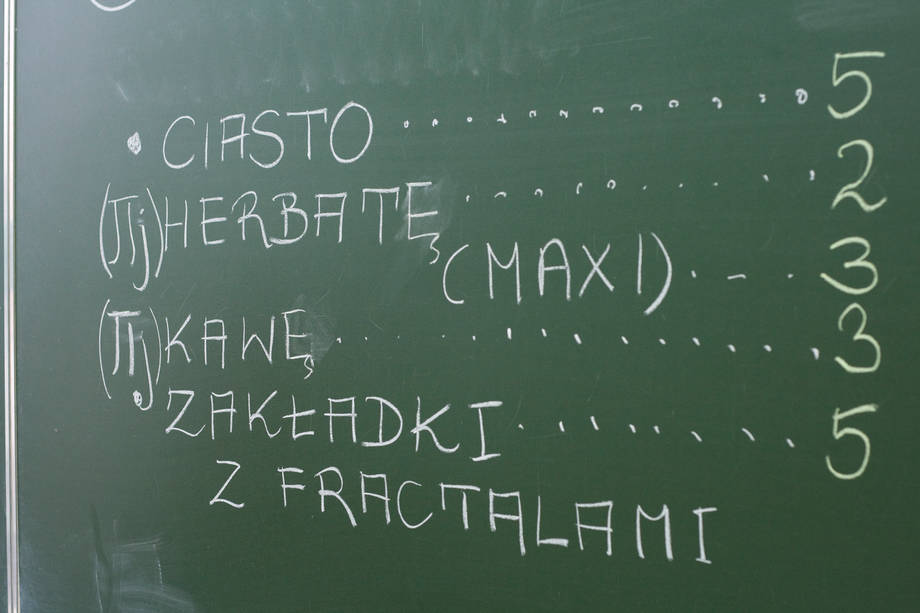 • CIASTO .................. 5
(Πj) HERBATĘ .................. 2
(MAXI) ... 3
(Πj) KAWĘ .................. 3
• ZAKŁADKI .......... 5
Z FRACTALAMI